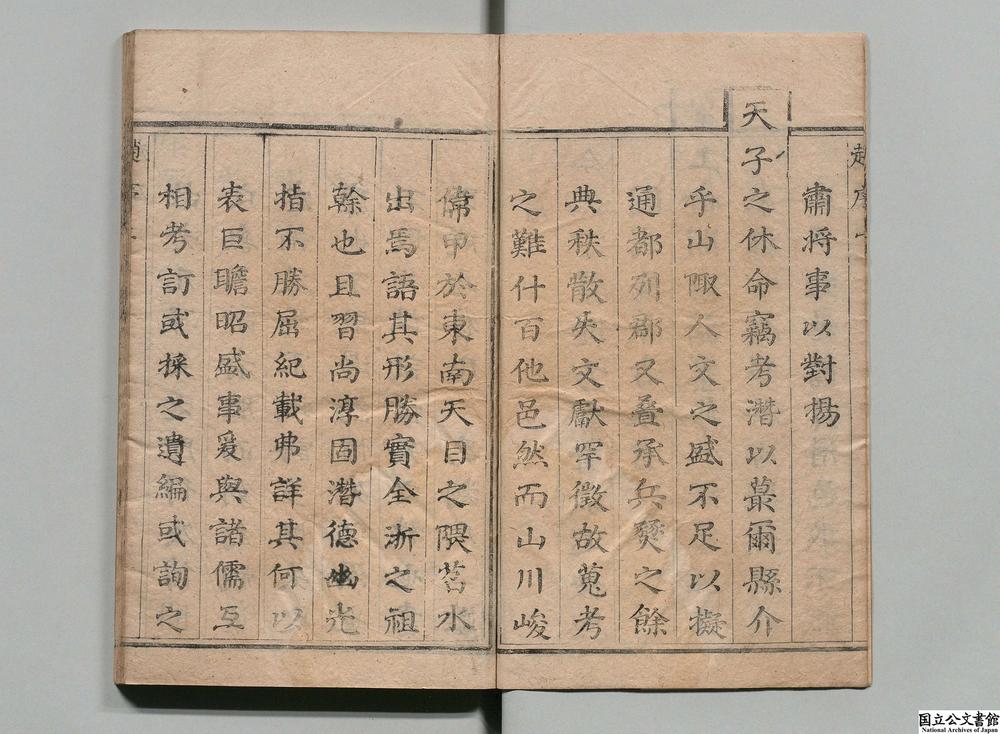 肅将事以對揚
天子之休命竊考潛以蕞爾縣介
乎山陬人文之盛不足以擬
通都列郡又疊承兵燹之餘
典秩散失文獻罕徵故蒐考
之難什百他邑然而山川峻
偉甲於東南天目之隈苕水
出焉語其形勝實全浙之祖
幹也且習尚淳固潛德幽光
指不勝屈紀載弗詳其何以
表巨瞻昭盛事爰與諸儒互
相考訂或採之遺編或詢之
国立公文書館
National Archives of Japan